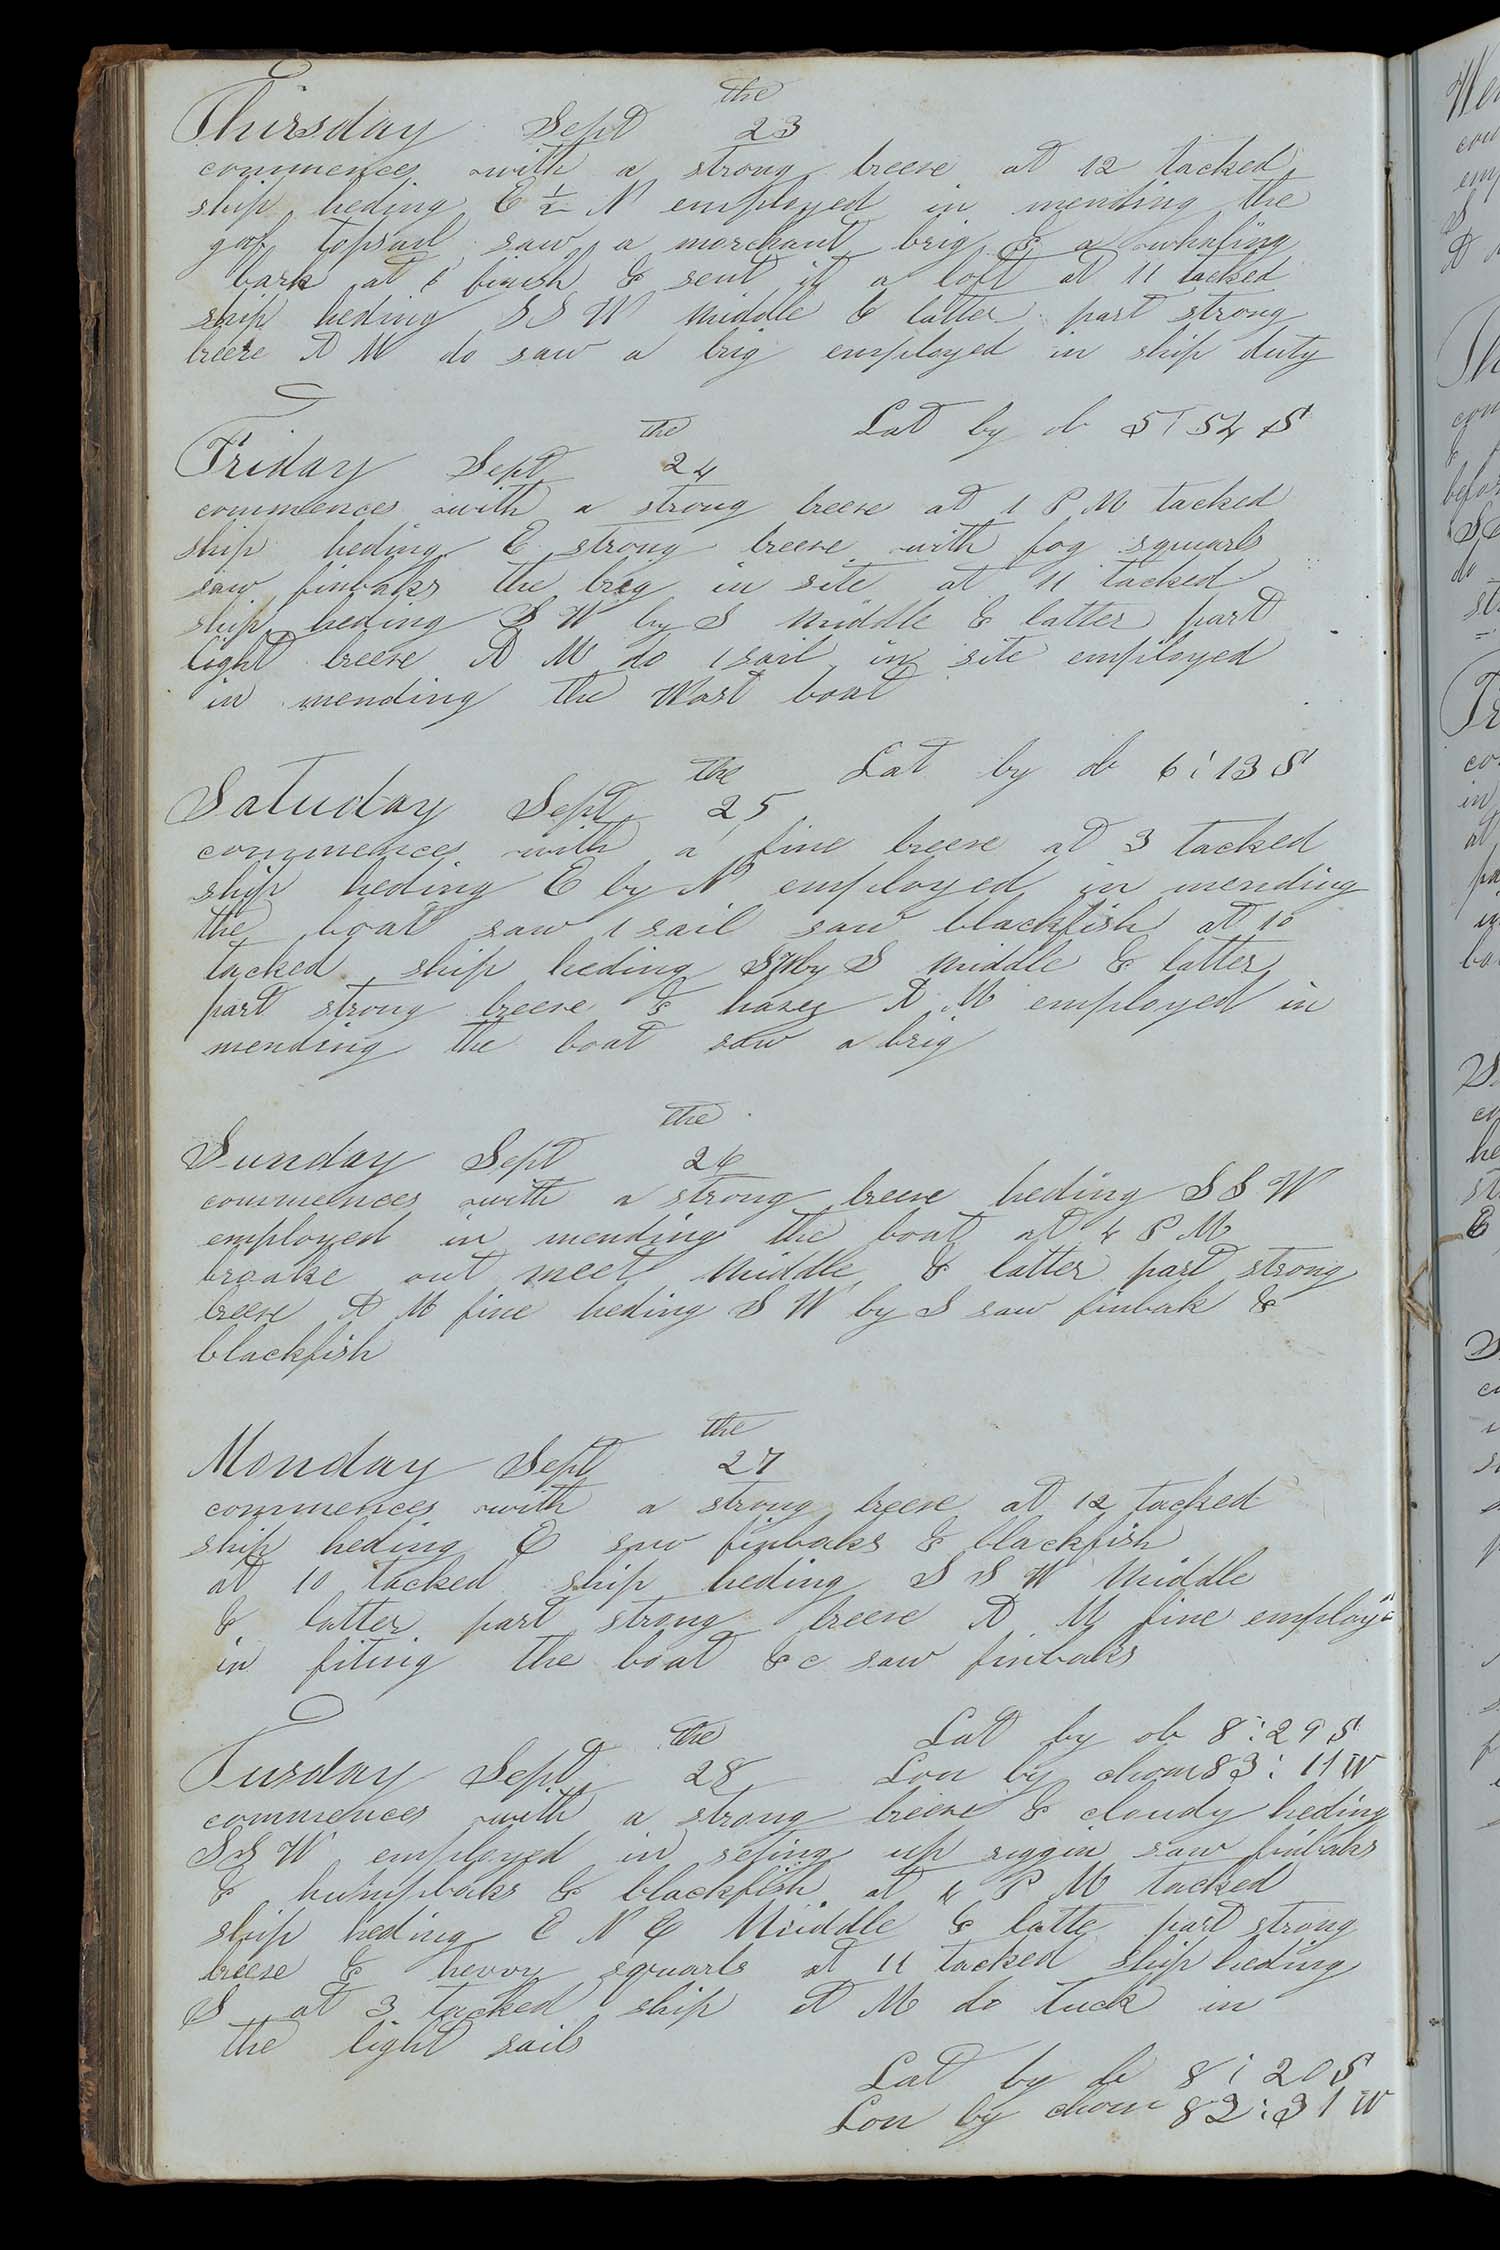 the
Thursday Sept 23
commences with a strong breese at 12 tacked
ship heding E 1/2 N employed in mending the
gaf topsail saw a marchant brig & a whaling
bark at 6 finish & sent it a loft at 11 tacked
ship heding S S W middle & latter part strong
breese A M do saw a brig employed in ship duty
Lat by ob 5 : 54 S
the
Friday Sept 24
commences with a strong breese at 1 P M tacked
ship heding E strong breese with fog squarls
saw finbaks the brig in site at 11 tacked
ship heding S W by S middle & latter part
light breese A M do 1 sail in site employed
in mending the Wast boat
Lat by ob 6 : 13 S
the
Satuday Sept 25
commences with a fine breese at 3 tacked
ship heding E by N employed in mending
the boat saw 1 sail saw blackfish at 10
tacked ship heding SW by S middle & latter
part strong breese & hasey A M employed in
mending the boat saw a brig
the
Sunday Sept 26
commences with a strong breese heding S S W
employed in mending the boat at 4 P M
broake out meet middle & latter part strong
breese A M fine heding S W by S saw finbak &
blackfish
the
Monday Sept 27
commences with a strong breese at 12 tacked
ship heding E saw finbaks & blackfish
at 10 tacked ship heding S S W middle
& latter part strong breese A M fine employ
in fiting the boat &c saw finbaks
Lat by ob 8 : 29 S
the
Tusday Sept 28 Lon by chom 83 : 11 W
commences with a strong breese & cloudy heding
S S W employed in seting up riggin saw finbaks
& humpbaks & blackfish at 4 P M tacked
ship heding E N E Middle & latte part strong
breese & hevvy squarls at 11 tacked ship heding
S at 3 tacked ship A M do tuck in
the light sails
Lat by ob 8 : 20 S
Lon by chom 82 : 31 W